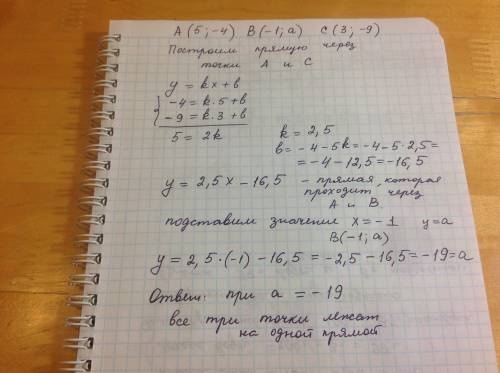 A (5; -4) B (-1; a) C (3; -9)
Построим прямую через
точки A и C
y = kx + b
-4 = k·5 + b
-9 = k·3 + b
5 = 2k
k = 2,5
b = -4 - 5k = -4 - 5·2,5 =
= -4 - 12,5 = -16,5
y = 2,5x - 16,5 - прямая, которая
проходит через
A и B
подставим значение x = -1 y = a
B(-1; a)
y = 2,5·(-1) - 16,5 = -2,5 - 16,5 = -19 = a
Ответ: при a = -19
все три точки лежат
на одной прямой